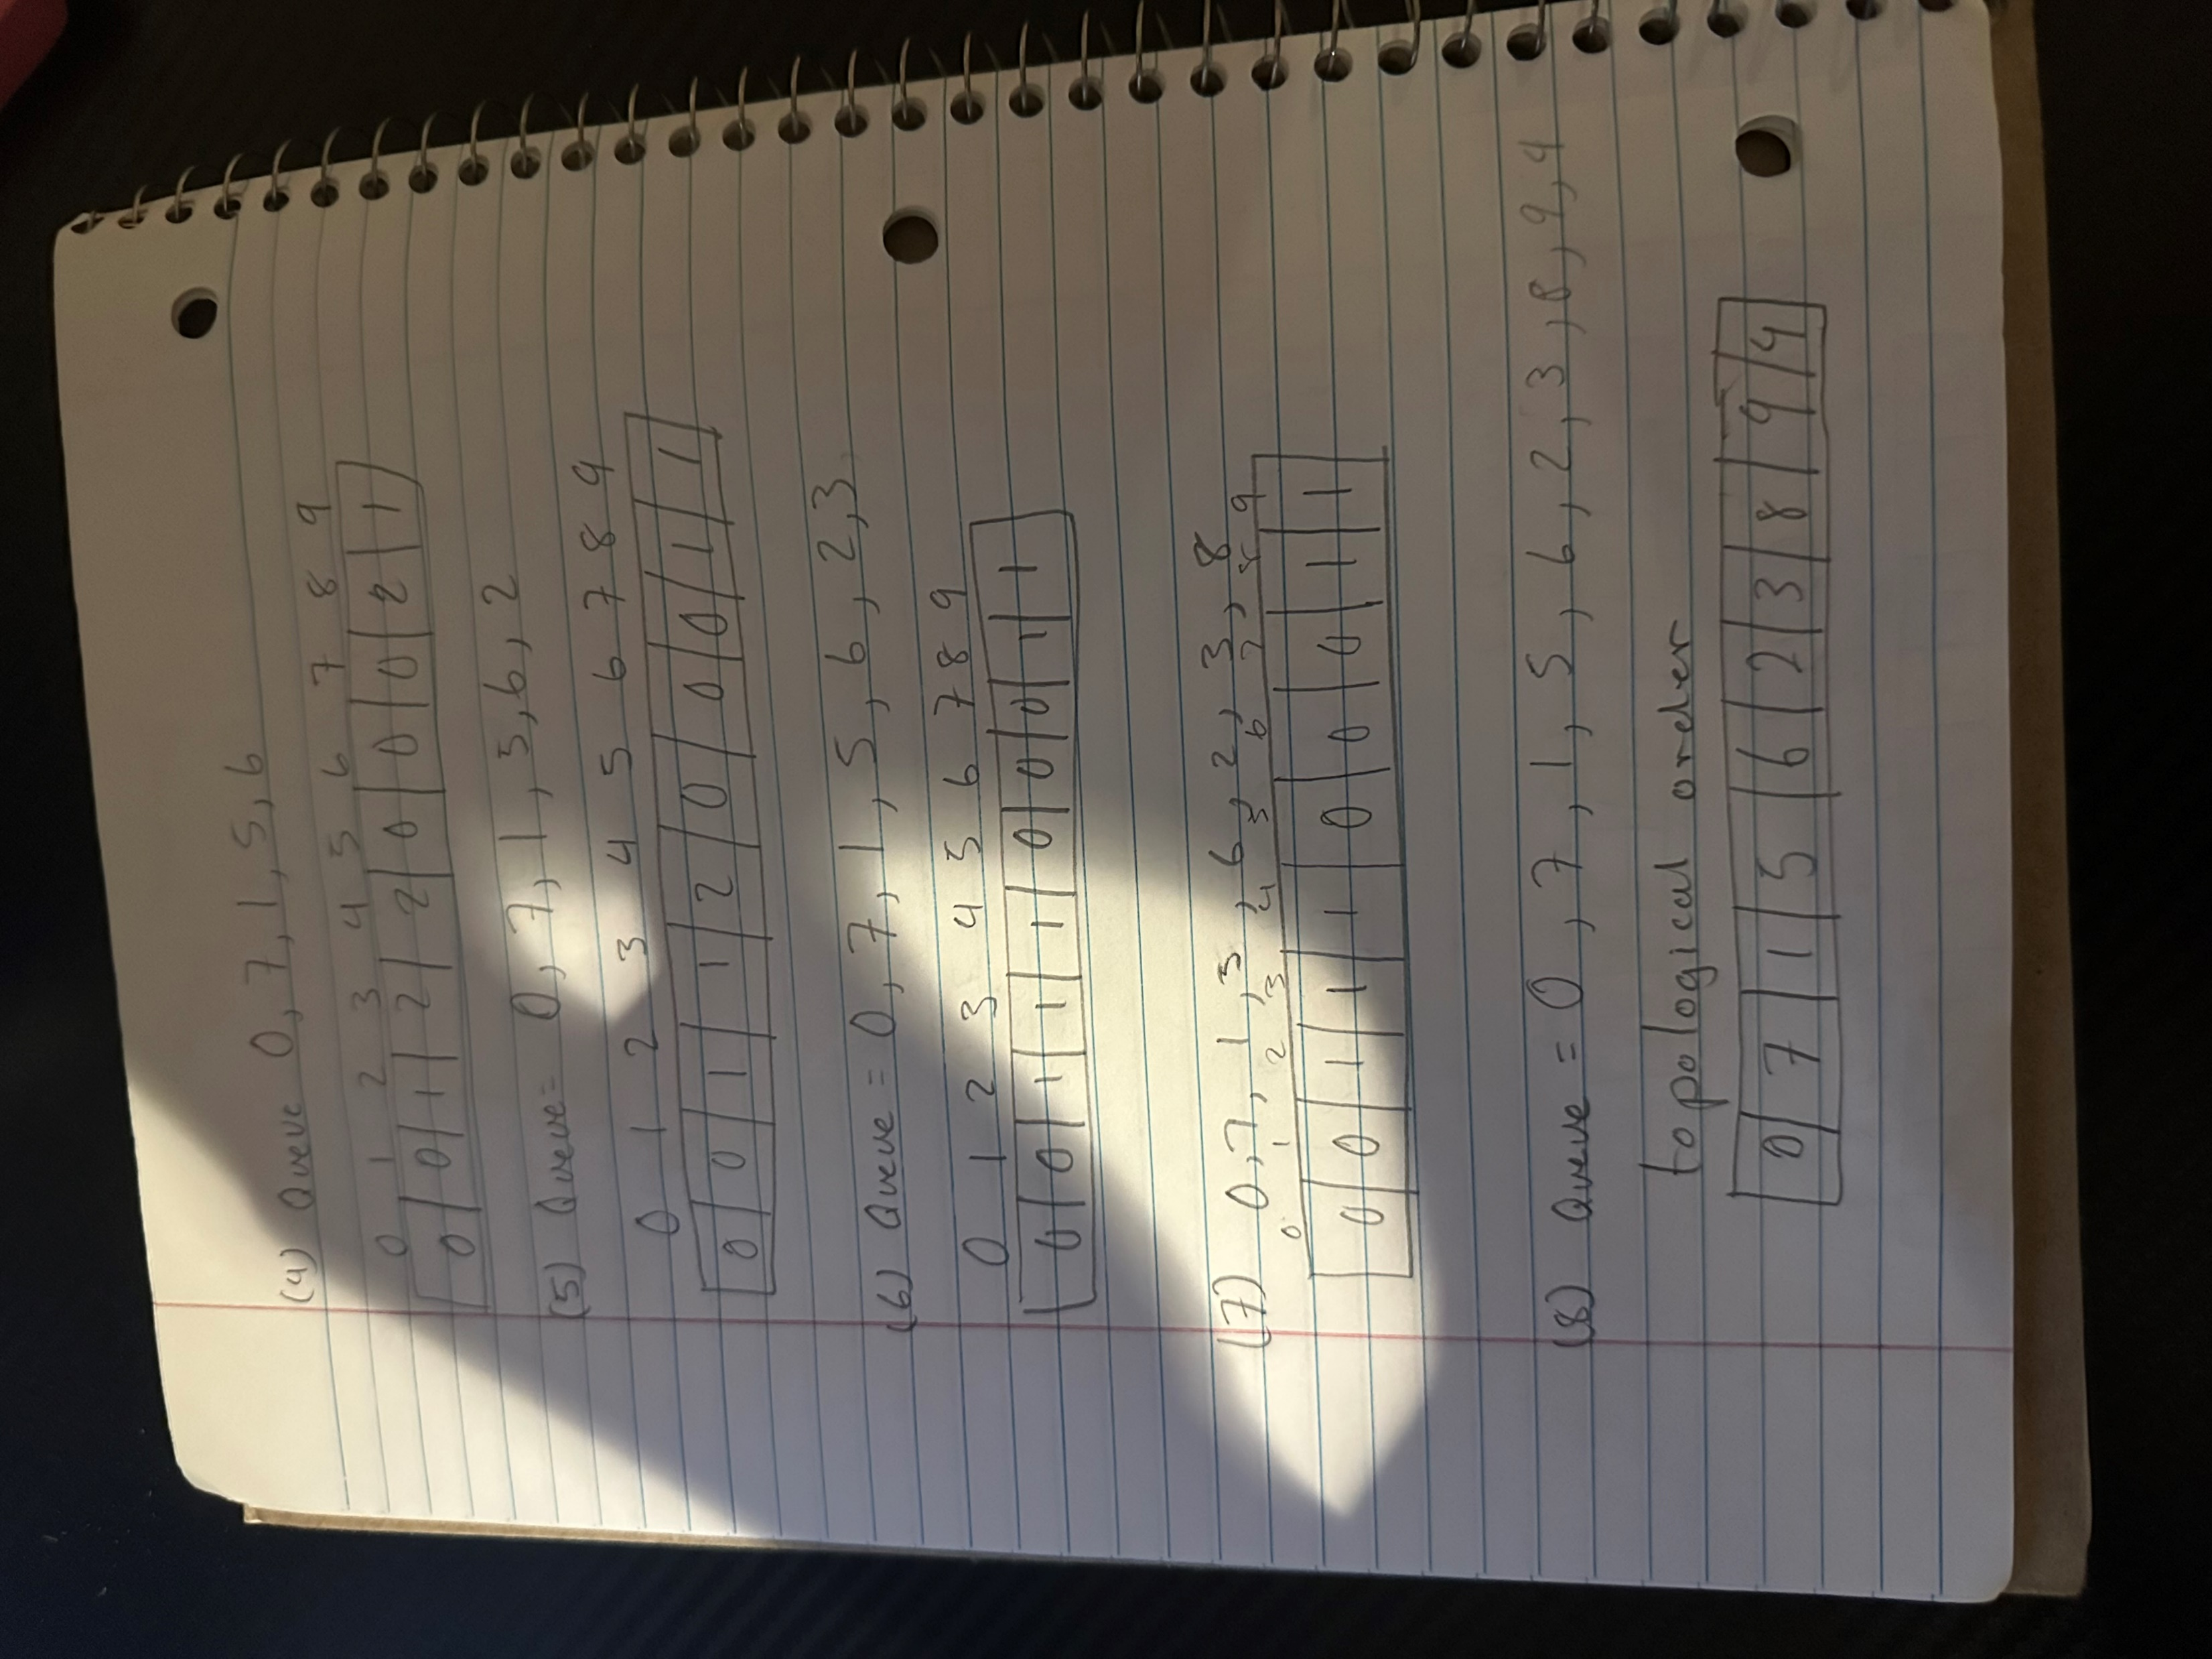 (4) Queue 0, 7, 1, 5, 6
0 1 2 3 4 5 6 7 8 9
0 0 1 2 2 0 0 0 2 1
(5) Queue = 0, 7, 1, 5, 6, 2
0 1 2 3 4 5 6 7 8 9
0 0 1 1 2 0 0 0 1 1
(6) Queue = 0, 7, 1, 5, 6, 2, 3
0 1 2 3 4 5 6 7 8 9
0 0 1 1 1 0 0 0 1 1
(7) 0, 7, 1, 5, 6, 2, 3, 8
0 1 2 3 4 5 6 7 8 9
0 0 1 1 1 0 0 0 1 1
(8) Queue = 0, 7, 1, 5, 6, 2, 3, 8, 9, 4
topological order
0 7 1 5 6 2 3 8 9 4